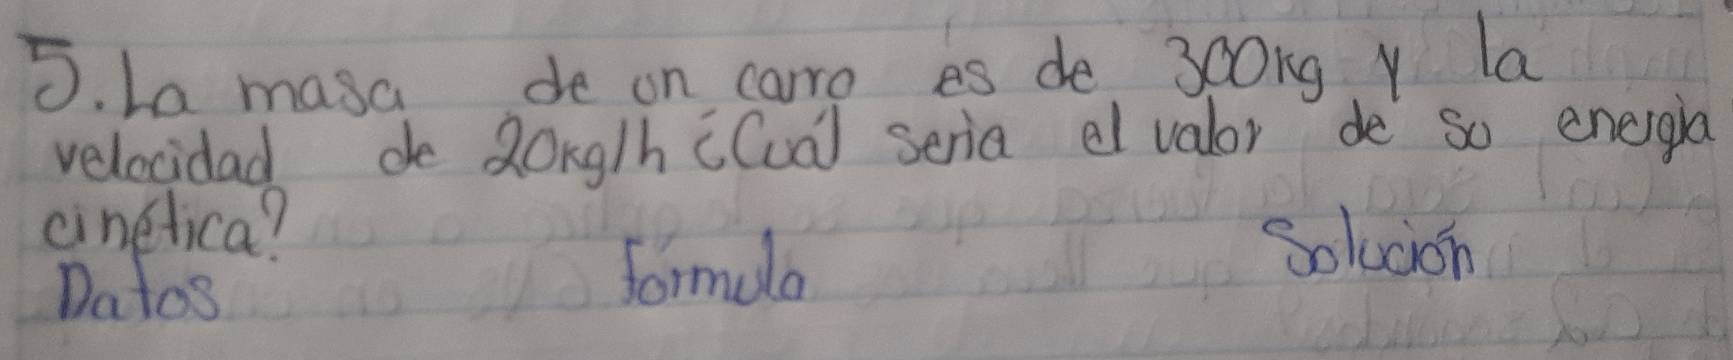 5. La masa de un carro es de 300kg y la
velocidad de 20kg/h ¿Cuál seria el valor de su energia
cinética?
Datos formula Solución